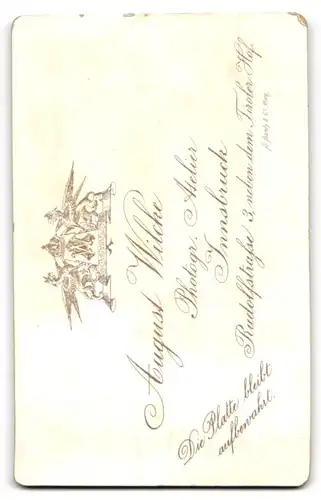 August Wilcke
Photogr. Atelier
Innsbruck
Rudolfstraße 3, neben dem Tiroler Hof.
Die Platte bleibt
aufbewahrt.